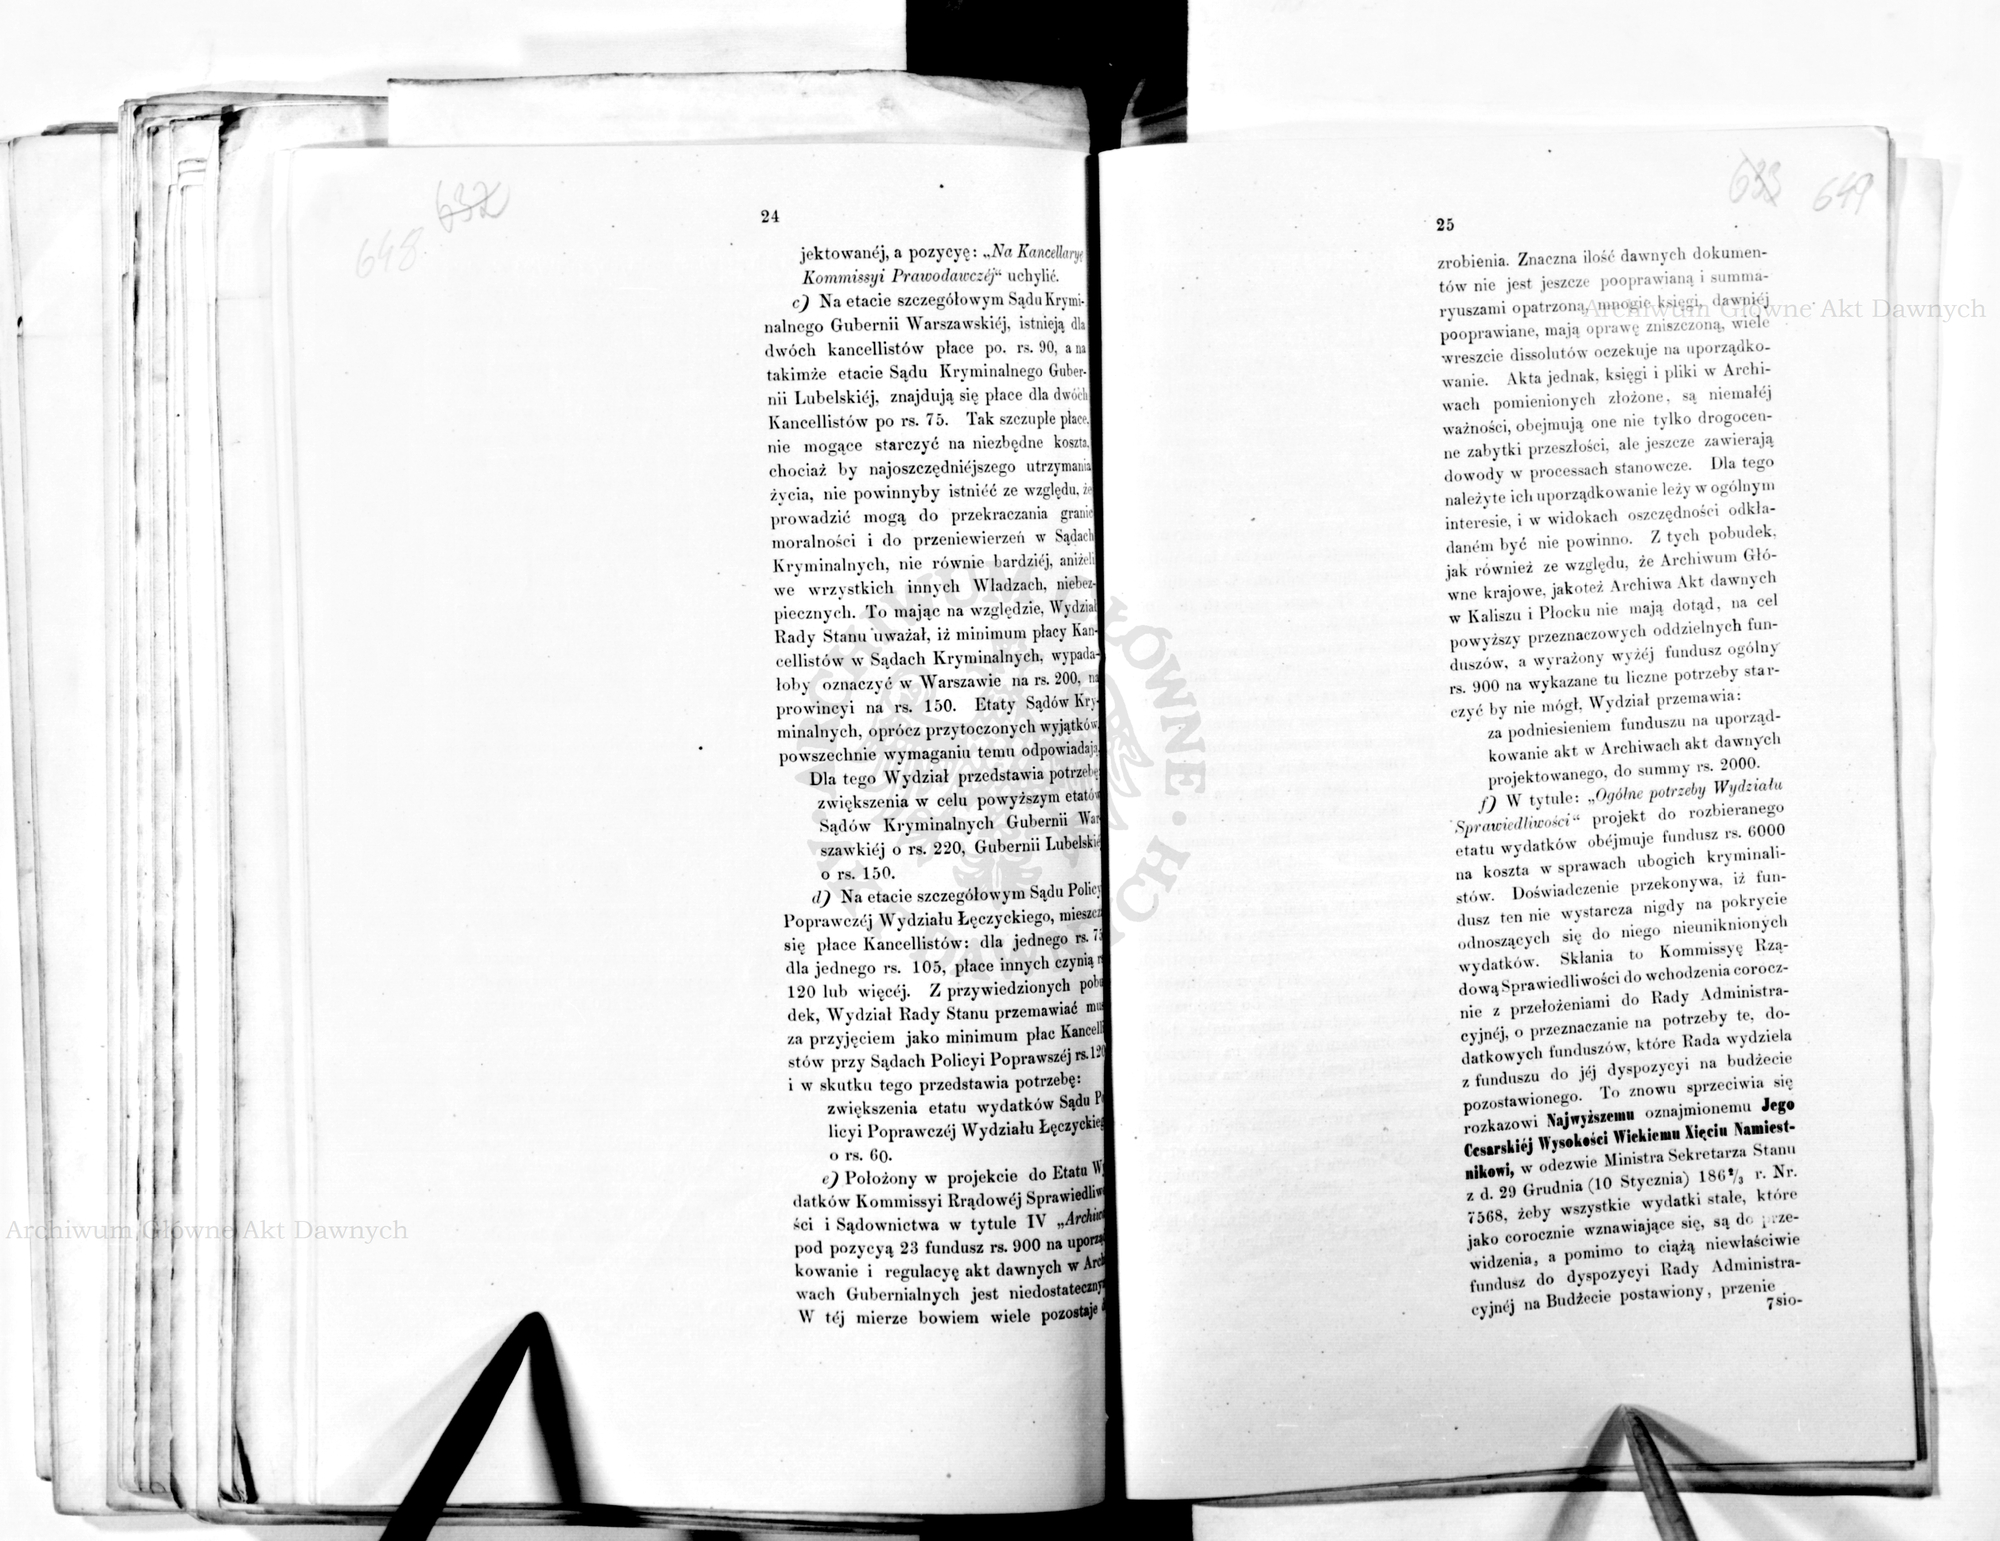 632
648.
24
jektowanéj, a pozycyę: „Na Kancellaryę
Kommissyi Prawodawczéj“ uchylić.
c) Na etacie szczegółowym Sądu Krymi-
nalnego Gubernii Warszawskiéj, istnieją dla
dwóch kancellistów płace po. rs. 90, a na
takimże etacie Sądu Kryminalnego Guber-
nii Lubelskiéj, znajdują się płace dla dwóch
Kancellistów po rs. 75. Tak szczupłe płace,
nie mogące starczyć na niezbędne koszta,
chociaż by najoszczędniéjszego utrzymania
życia, nie powinnyby istniéć ze względu, że
prowadzić mogą do przekraczania granic
moralności i do przeniewierzeń w Sądach
Kryminalnych, nie równie bardziéj, aniżeli
we wrzystkich innych Władzach, niebez-
piecznych. To mając na względzie, Wydział
Rady Stanu uważał, iż minimum płacy Kan-
cellistów w Sądach Kryminalnych, wypada-
łoby oznaczyć w Warszawie na rs. 200, na
prowincyi na rs. 150. Etaty Sądów Kry-
minalnych, oprócz przytoczonych wyjątków,
powszechnie wymaganiu temu odpowiadają.
Dla tego Wydział przedstawia potrzebę
zwiększenia w celu powyższym etatów
Sądów Kryminalnych Gubernii War
szawkiéj o rs. 220, Gubernii Lubelskiéj
o rs. 150.
d) Na etacie szczegółowym Sądu Policy
Poprawczéj Wydziału Łęczyckiego, mieszcz
się płace Kancellistów: dla jednego rs. 75
dla jednego rs. 105, płace innych czynią r
120 lub więcéj. Z przywiedzionych pobu
dek, Wydział Rady Stanu przemawiać mus
za przyjęciem jako minimum płac Kancelli
stów przy Sądach Policyi Poprawszéj rs. 120
i w skutku tego przedstawia potrzebę:
zwiększenia etatu wydatków Sądu Po
licyi Poprawczéj Wydziału Łęczyckieg
o rs. 60.
e) Położony w projekcie do Etatu Wy
datków Kommissyi Rrądowéj Sprawiedliwo
ści i Sądownictwa w tytule IV „Archiwa
pod pozycyą 23 fundusz rs. 900 na uporząd
kowanie i regulacyę akt dawnych w Archi
wach Gubernialnych jest niedostatecznym
W téj mierze bowiem wiele pozostaje d
633
649
25
zrobienia. Znaczna ilość dawnych dokumen-
tów nie jest jeszcze pooprawianą i summa-
ryuszami opatrzoną, mnogie księgi, dawniéj
pooprawiane, mają oprawę zniszczoną, wiele
wreszcie dissolutów oczekuje na uporządko-
wanie. Akta jednak, księgi i pliki w Archi-
wach pomienionych złożone, są niemałéj
ważności, obejmują one nie tylko drogocen-
ne zabytki przeszłości, ale jeszcze zawierają
dowody w processach stanowcze. Dla tego
należyte ich uporządkowanie leży w ogólnym
interesie, i w widokach oszczędności odkła-
daném być nie powinno. Z tych pobudek,
jak również ze względu, że Archiwum Głó-
wne krajowe, jakoteż Archiwa Akt dawnych
w Kaliszu i Płocku nie mają dotąd, na cel
powyższy przeznaczowych oddzielnych fun-
duszów, a wyrażony wyżéj fundusz ogólny
rs. 900 na wykazane tu liczne potrzeby star-
czyć by nie mógł, Wydział przemawia:
za podniesieniem funduszu na uporząd-
kowanie akt w Archiwach akt dawnych
projektowanego, do summy rs. 2000.
f) W tytule: „Ogólne potrzeby Wydziału
Sprawiedliwości“ projekt do rozbieranego
etatu wydatków obéjmuje fundusz rs. 6000
na koszta w sprawach ubogich kryminali-
stów. Doświadczenie przekonywa, iż fun-
dusz ten nie wystarcza nigdy na pokrycie
odnoszących się do niego nieuniknionych
wydatków. Skłania to Kommissyę Rzą-
dową Sprawiedliwości do wchodzenia corocz-
nie z przełożeniami do Rady Administra-
cyjnéj, o przeznaczanie na potrzeby te, do-
datkowych funduszów, które Rada wydziela
z funduszu do jéj dyspozycyi na budżecie
pozostawionego. To znowu sprzeciwia się
rozkazowi Najwyższemu oznajmionemu Jego
Cesarskiéj Wysokości Wiekiemu Xięciu Namiest-
nikowi, w odezwie Ministra Sekretarza Stanu
z d. 29 Grudnia (10 Stycznia) 186²/₃ r. Nr.
7568, żeby wszystkie wydatki stałe, które
jako corocznie wznawiające się, są do prze-
widzenia, a pomimo to ciążą niewłaściwie
fundusz do dyspozycyi Rady Administra-
cyjnéj na Budżecie postawiony, przenie
7 sio-
Archiwum Główne Akt Dawnych
Archiwum Główne Akt Dawnych